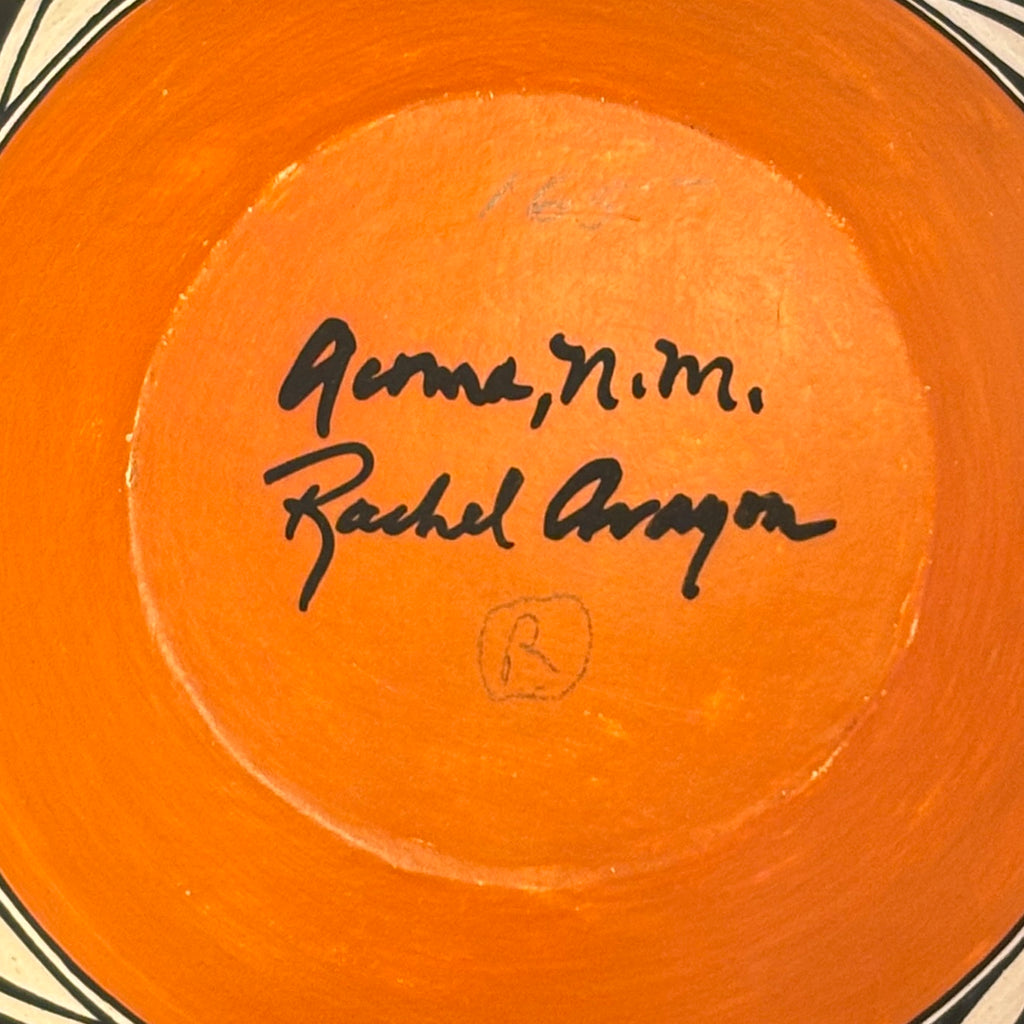 Acoma, N.M.
Rachel Aragon
R